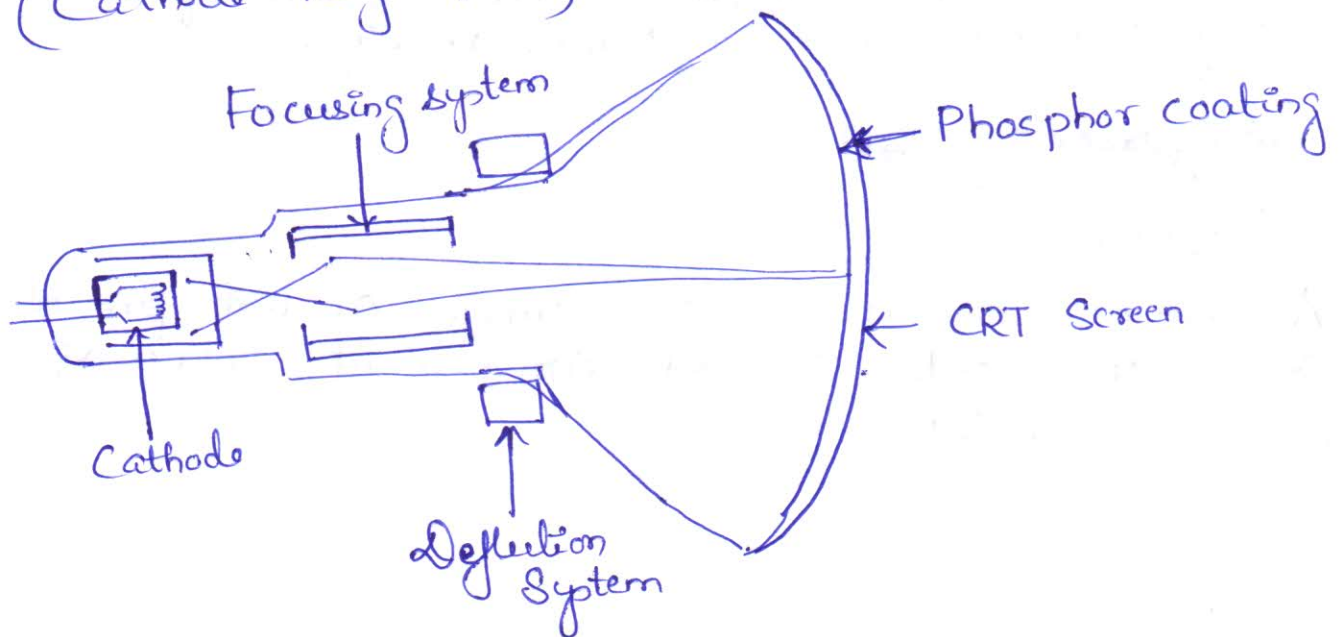 (Cathode
Focusing system
Phosphor coating
CRT Screen
Cathode
Deflection
System